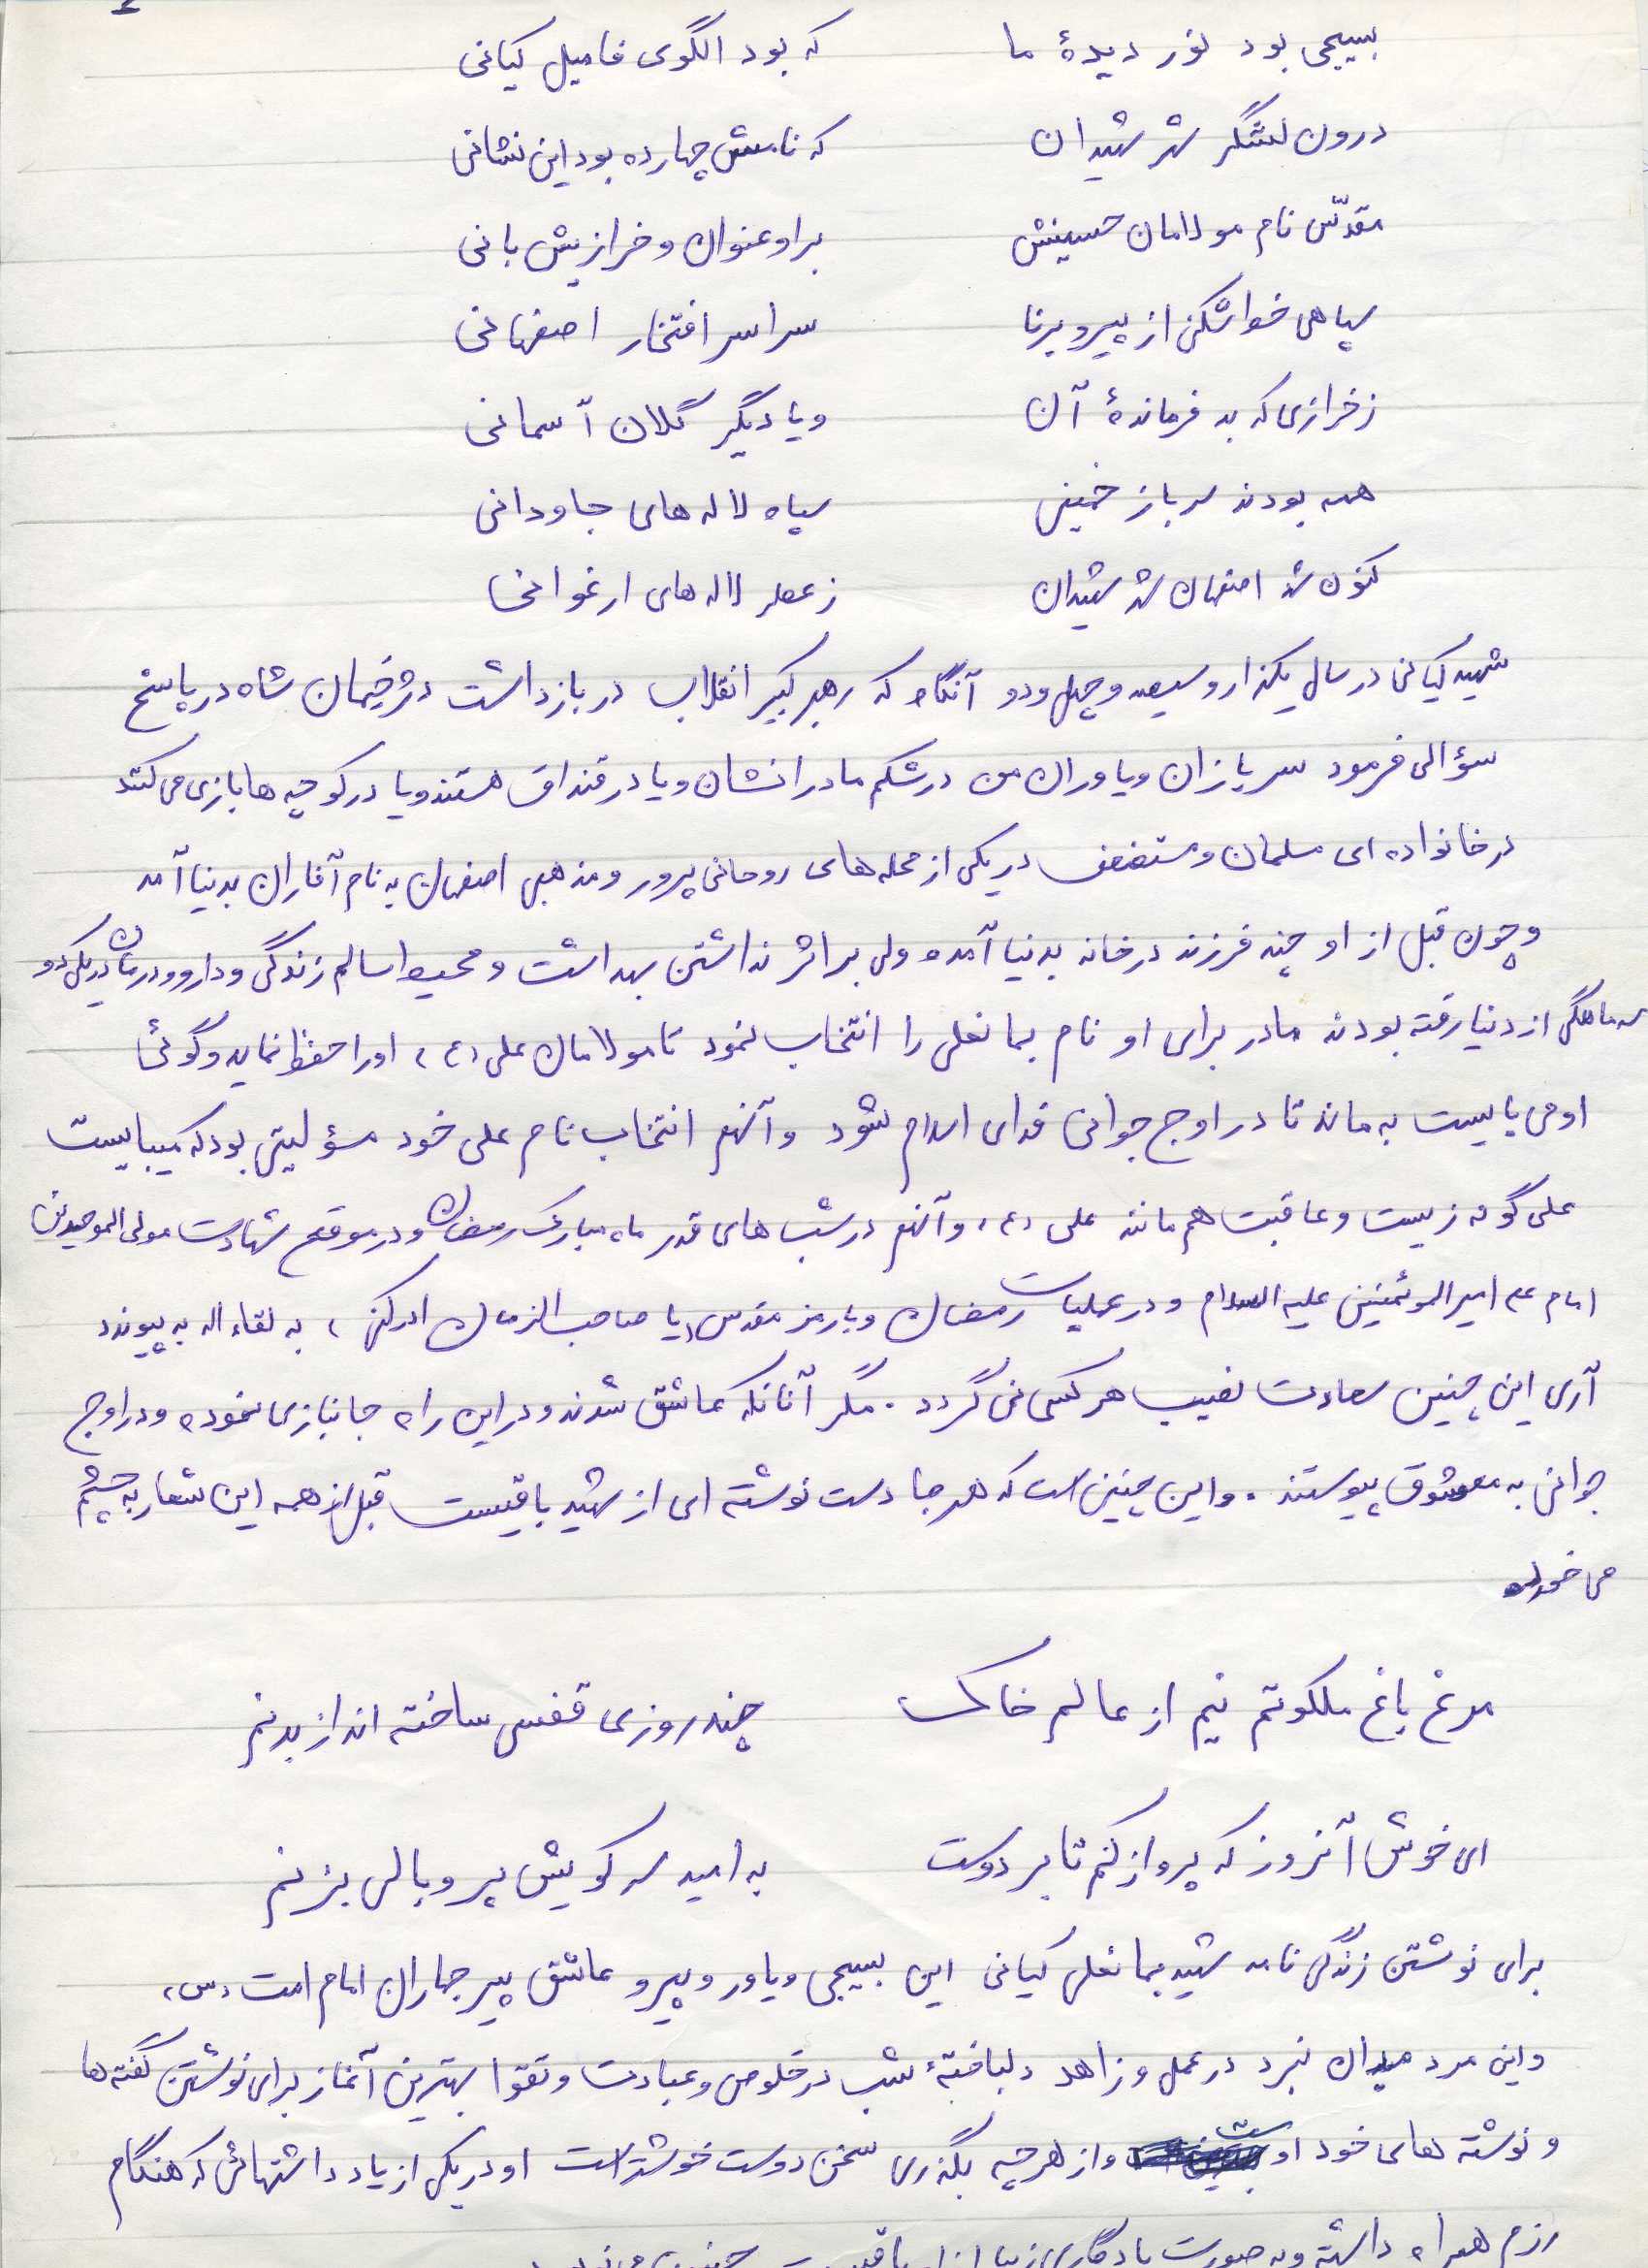 بسیجی بود نور دیدهٔ ما که بود الگوی فامیل کیانی
درون لشگر شهر شهیدان که نامش چهارده بود این نشانی
مقدّس نام مولامان حسینش براو عنوان و خرازیش بانی
سپاهی خواشکن از پیر و برنا سراسر افتخار اصفهانی
زخرازی که بد فرماندهٔ آن ویا دیگر گلان آسمانی
همه بودند سرباز خمینی سپاه لاله های جاودانی
کنون شد اصفهان شهر شهیدان زعطر لاله های ارغوانی
شهید کیانی در سال یکهزار و سیصد و چهل و دو آنگاه که رهبر کبیر انقلاب در بازداشت دژخیمان شاه در پاسخ
سؤالی فرمود سربازان ویاوران من درشکم مادرانشان ویا در قنداق هستند ویا در کوچه ها بازی می کنند
درخانواده ای مسلمان و مستضعف در یکی از محله های روحانی پرور و مذهبی اصفهان به نام آفاران بدنیا آمد
وچون قبل از او چند فرزند درخانه بدنیا آمده ولی براثر نداشتن بهداشت و محیط سالم زندگی و دارو و درمان در یکی دو
سه ماهگی از دنیا رفته بودند مادر برای او نام بمانعلی را انتخاب نمود تا مولامان علی (ع) اورا حفظ نماید و گوئی
او می بایست به ماند تا در اوج جوانی فدای اسلام شود و آنهم انتخاب نام علی خود مسؤلیتی بود که میبایست
علی گونه زیست و عاقبت هم مانند علی (ع) و آنهم در شب های قدر ماه مبارک رمضان و در موقع شهادت مولی الموحدین
امام علی امیر الموئمنین علیه السلام و در عملیات رمضان و با رمز مقدس (یا صاحب الزمان ادرکنی) به لقاء اله به پیوندد
آری این چنین سعادت نصیب هر کسی نمی گردد. مگر آنانکه عاشق شدند و در این راه جانبازی نموده و در اوج
جوانی به معشوق پیوستند. و این چنین است که هر جا دست نوشته ای از شهید باقیست قبل از همه این شعار به چشم
می خورد
مرغ باغ ملکوتم نیم از عالم خاک چند روزی قفسی ساخته اند از بدنم
ای خوش آنروز که پرواز کنم تا بر دوست به امید سر کویش پر و بالی بزنم
برای نوشتن زندگی نامه شهید بمانعلی کیانی این بسیجی ویاور و پیرو عاشق پیر جماران امام امت (س)
واین مرد میدان نبرد در عمل و زاهد دلباختهٔ شب در خلوص و عبادت و تقوا بهترین آغاز برای نوشتن گفته ها
و نوشته های خود اوست و از هر چه بگذری سخن دوست خوشتر است او در یکی از یادداشتهائی که هنگام
رزم همراه داشته و به صورت یادگاری زیبا از او باقیست چنین می نویسد